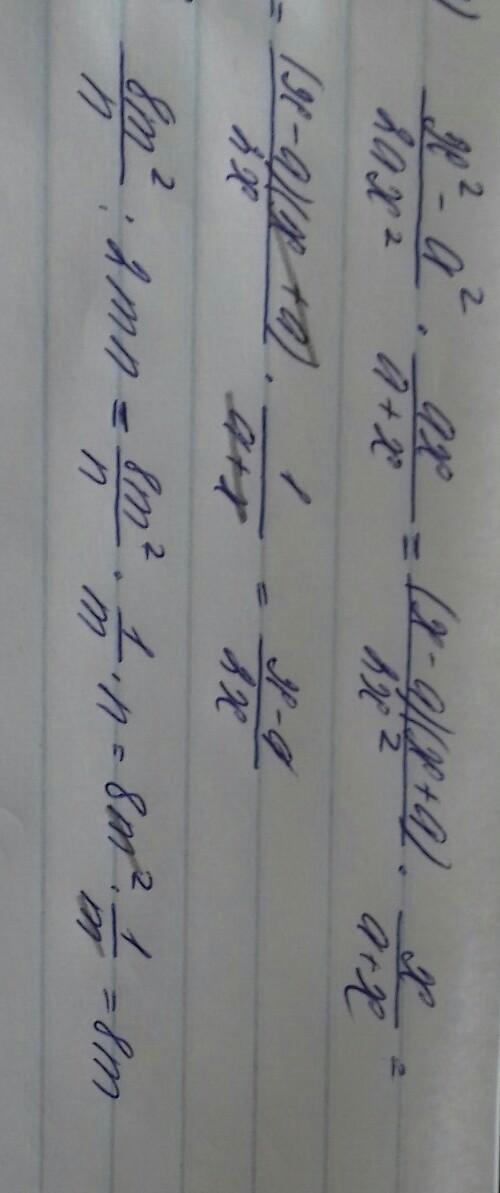 )
(x² - a²)/(2ax²) · ax/(a+x) = (x-a)(x+a)/(2x²) · x/(a+x) =
= (x-a)(x+a)/(2x) · 1/(a+x) = (x-a)/(2x)
8m²/n : 2mn = 8m²/n · 1/m · n = 8m² · 1/m = 8m